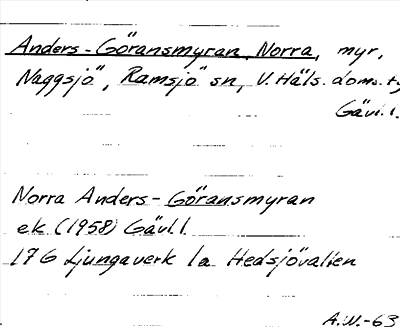 Anders-Göransmyran, Norra, myr,
Naggsjö, Ramsjö sn, V. Häls. doms.
Gävl.l.
Norra Anders-Göransmyran
ek. (1958) Gävl.l.
17G Ljungaverk 1a Hedsjövallen
A.W.-63